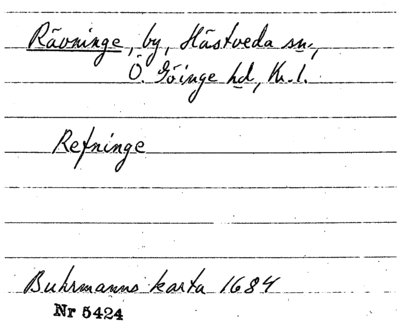 Rävninge, by, Hästveda sn.,
Ö. Göinge hd, Kr. l.
Refninge
Buhrmanns karta 1684
Nr 5424